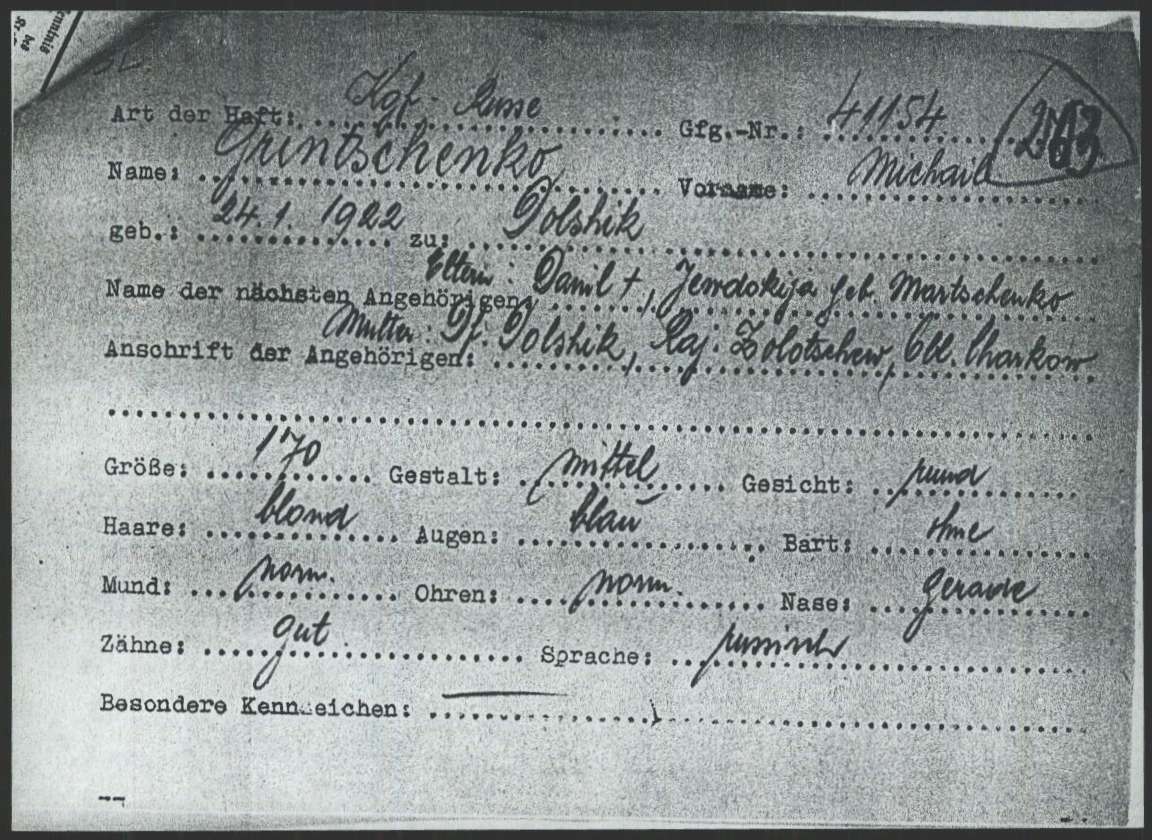 enntnis
des
Art der Haft: Kgf. Russe Gfg.-Nr.: 41154
Name: Grintschenko Vorname: Michail
geb.: 24.1.1922 zu: Polshik
Name der nächsten Angehörigen: Eltern: Danil +, Jewdokija geb. Martschenko
Anschrift der Angehörigen: Mutter: Df. Polshik, Raj. Zolotschew, Obl. Charkow
Größe: 170 Gestalt: mittel Gesicht: rund
Haare: blond Augen: blau Bart: ohne
Mund: norm. Ohren: norm. Nase: gerade
Zähne: gut. Sprache: russisch
Besondere Kennzeichen: —
--